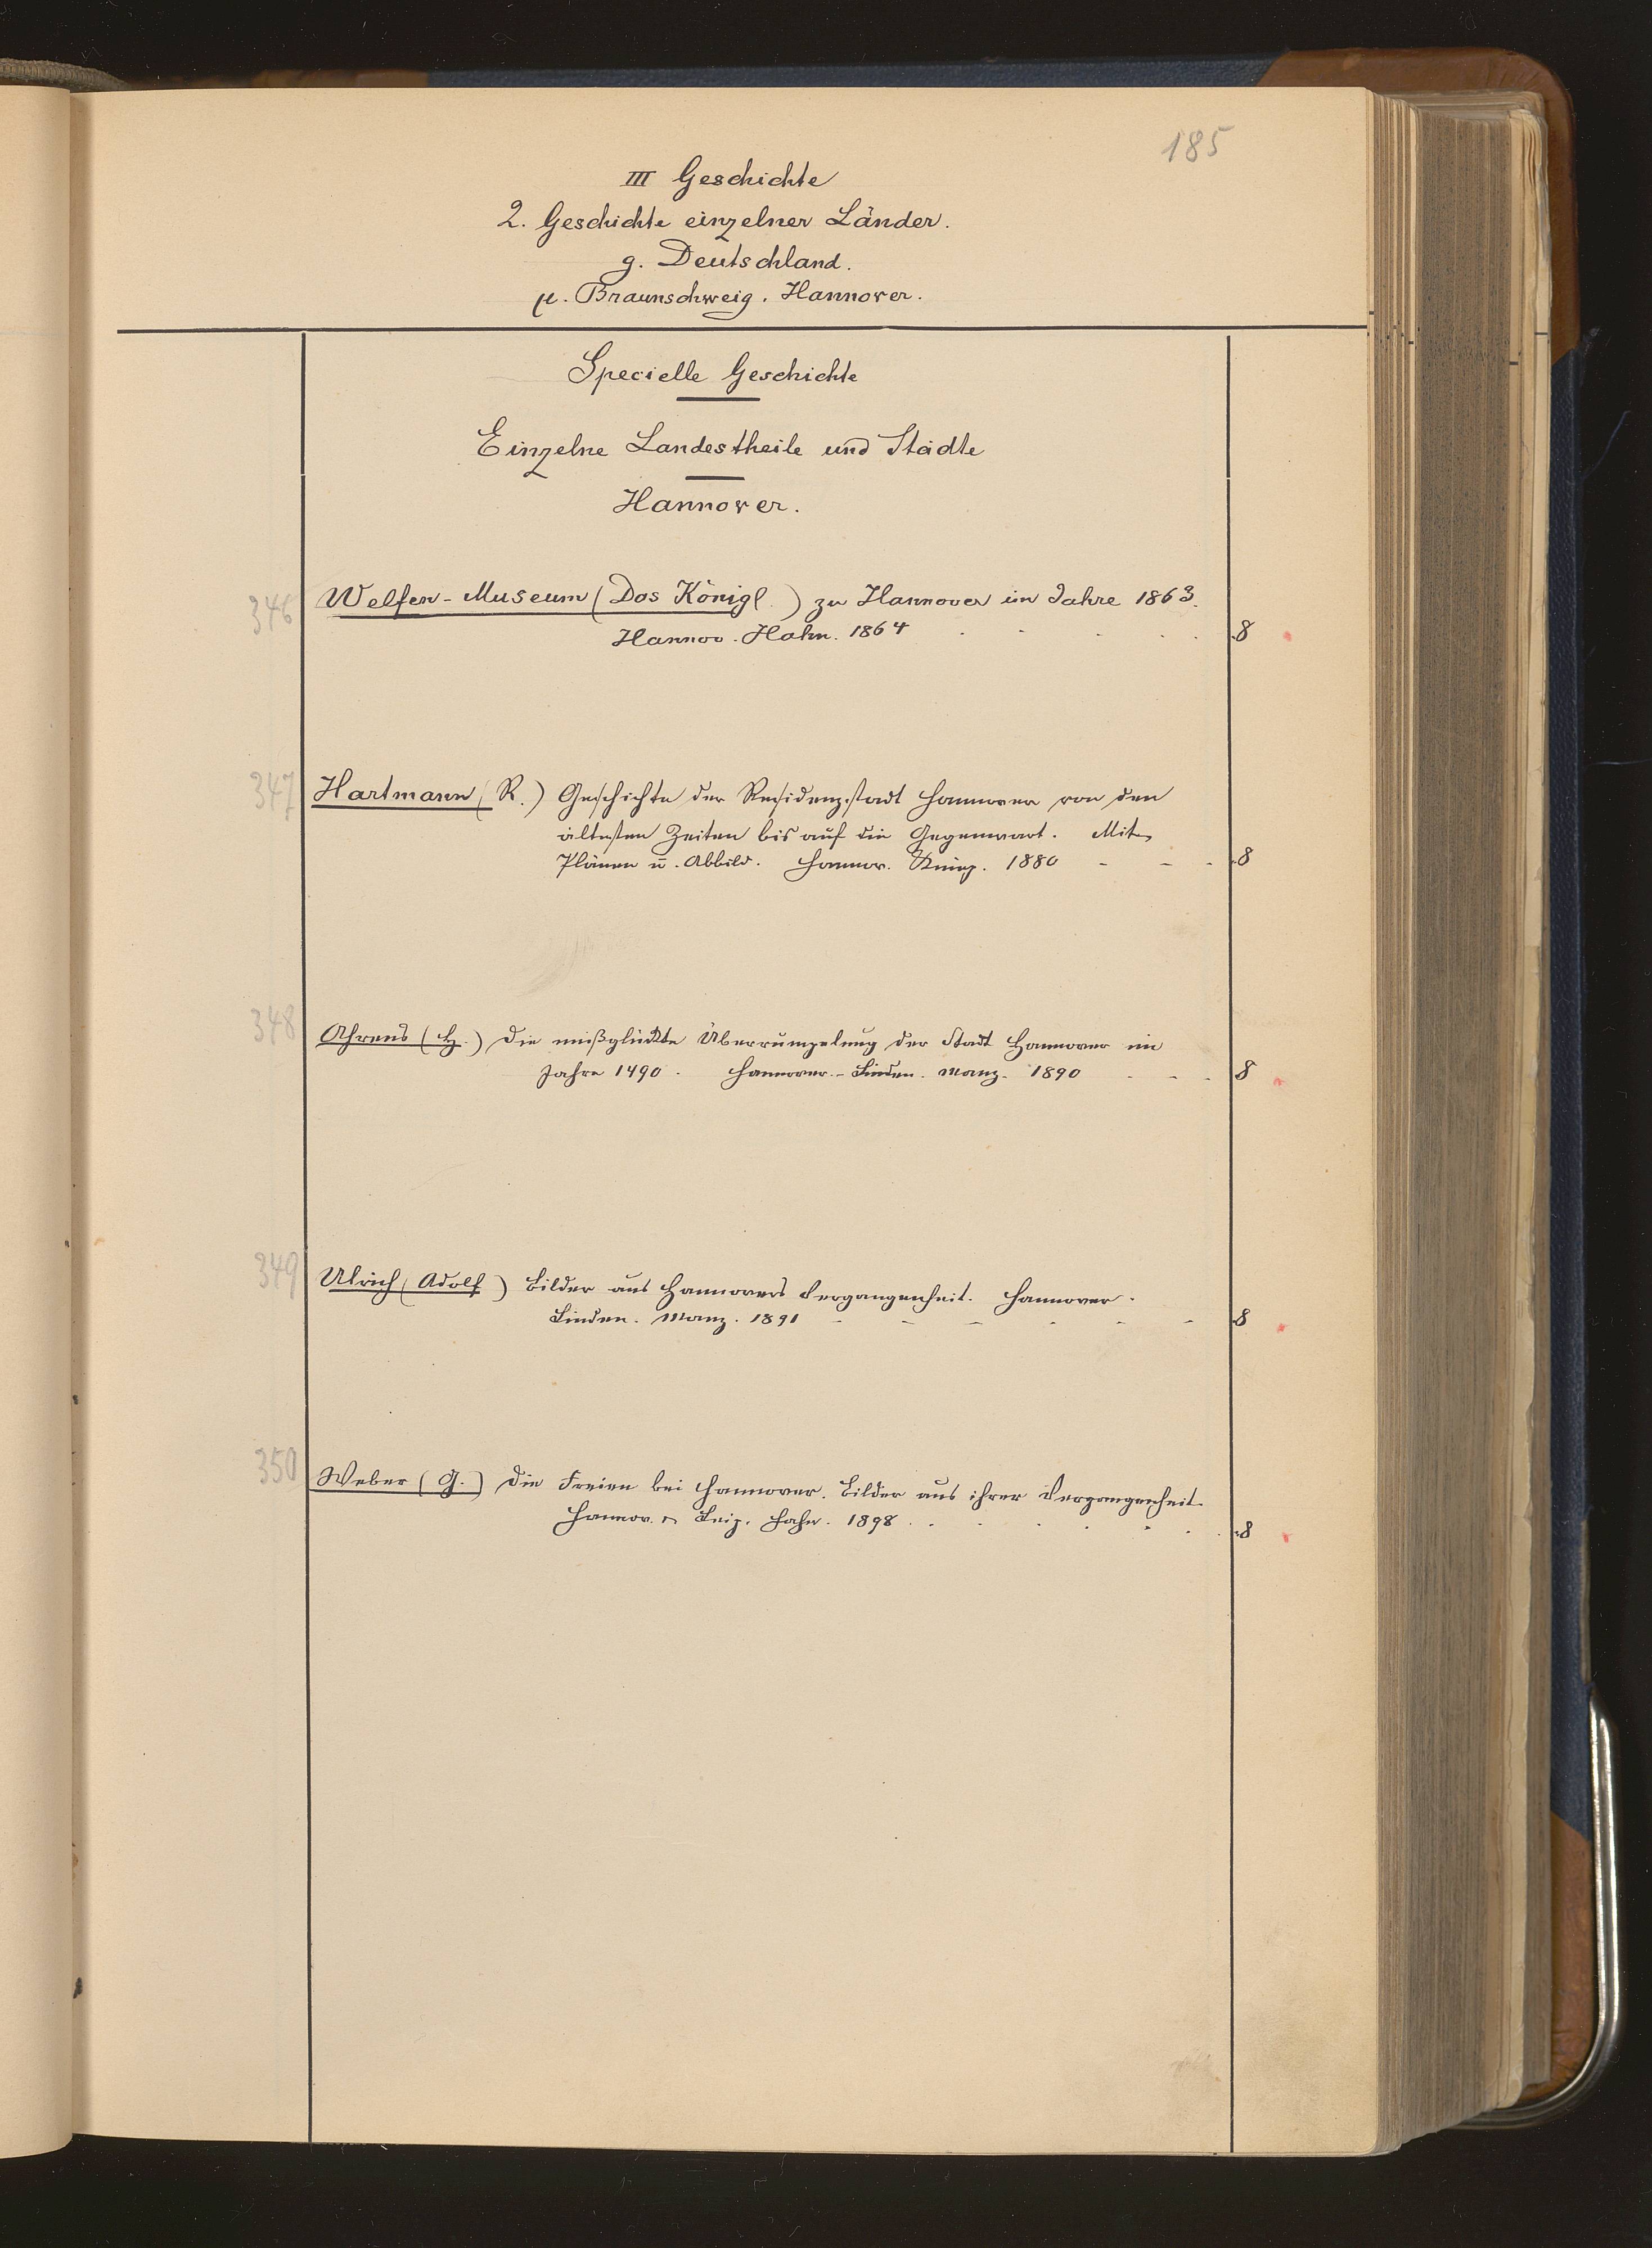 185
III Geschichte
2. Geschichte einzelner Länder.
g. Deutschland.
μ. Braunschweig. Hannover.
Specielle Geschichte
Einzelne Landestheile und Städte
Hannover.
346 Welfen-Museum (Das Königl.) zu Hannover im Jahre 1863.
Hannov. Hahn. 1864 . . . . . 8
347 Hartmann (R.) Geschichte der Residenzstadt Hannover von den
ältesten Zeiten bis auf die Gegenwart. Mit
Plänen u. Abbild. Hannov. Kniep. 1880 - - - 8
348 Ahrens (H.) Die mißglückte Überrumpelung der Stadt Hannover im
Jahre 1490. Hannover-Linden. Manz. 1890 . - - 8
349 Ulrich (Adolf) Bilder aus Hannovers Vergangenheit. Hannover-
Linden. Manz. 1891 - - - - - - 8
350 Weber (G.) Die Freien bei Hannover. Bilder aus ihrer Vergangenheit.
Hannov. u. Leipz. Hahn. 1898 . . . . . . . 8